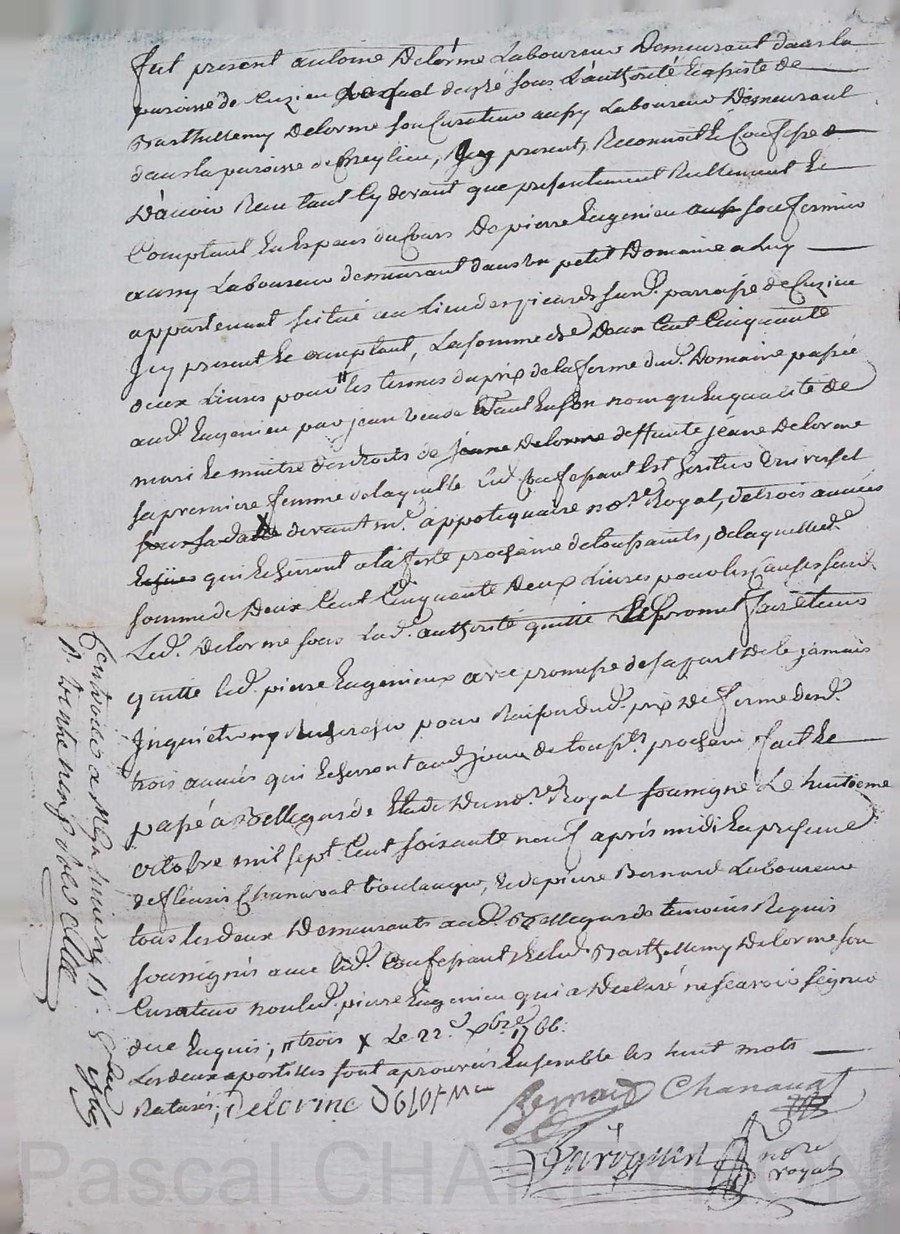 fut present antoine Delorme Laboureur Demeurant dans la
paroisse de Cuzieu lequel de gré sous L'authorité Et assiste de
Barthellemy Delorme son Curateur aussy Laboureur Demeurant
dans la paroisse de Creylieu, Icy present, Reconnoit Et Confesse
D'avoir Reçu tant Cy devant que presentement Reellement Et
Comptant En Especes du Cours De pierre Eugenieu son fermier
aussy Laboureur demeurant dans un petit Domaine a Luy
appartenant scitué au Lieu des picards sur. parroisse de Cuzieu
Icy present Et acceptant, La somme de Deux Cent Cinquante
deux Livres pour " les termes du prix de la ferme dud. Domaine passée
aud. Eugenieu par jean tant En son nom qu'En qualité de
mari Et maitre des droits de jeane Delorme deffunte jeane Delorme
sa premiere femme de laquelle Led. Confessant Est heritier Universel
sous sa date X devant me. appotiquaire nore. Royal, de trois années
qui Echerront a la feste prochaine de toussaints, de laquelle de.
somme de Deux Cent Cinquante Deux Livres pour les Causes susd.
Led. Delorme sous Lad. authorité quitte Et promet faire tenir
quitte led. pierre Eugenieux avec promesse de sa part de le jamais
Inquietter ny Rechercher pour Raison dud. prix De ferme desd.
trois années qui Echerront aud. jour de toussts. prochain, fait Et
passé à Bellegarde Etude Du nore. Royal soussigné Le huitieme
octobre mil sept Cent soixante neuf après midi En presence
de fleuris Chanavat boulanger, Et de pierre Bernard Laboureur
tous les deux Demeurants aud. Bellegarde temoins Requis
soussignés avec led. Confessant Et led. Barthellemy Delorme son
Curateur non led. pierre Eugenieu qui a Declaré ne scavoir signer
de ce Enquis, " trois X Le 22e. xbre. 1766.
Les deux apostilles sont aprouvées Ensemble les huit mots
Raturés, Delorme Delorme
Bernard Chanavat
nore
royal
Pascal CHARETHON